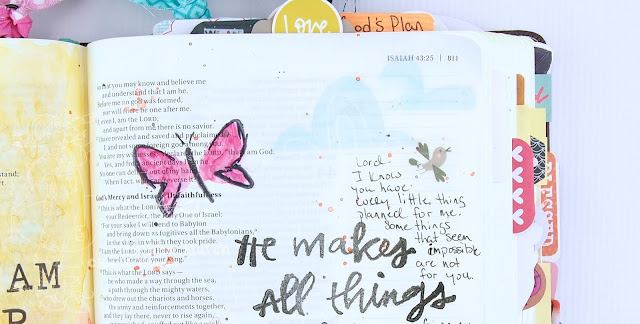 Love
God's Plan
ISAIAH 43:25 | 811
so that you may know and believe me
and understand that I am he.
Before me no god was formed,
nor will there be one after me.
I, even I, am the LORD,
and apart from me there is no savior.
I have revealed and saved and proclaimed
I, and not some foreign god among you.
You are my witnesses," declares the LORD, "that I am God.
Yes, and from ancient days I am he.
No one can deliver out of my hand.
When I act, who can reverse it?"
God's Mercy and Israel's Unfaithfulness
"This is what the LORD says—
your Redeemer, the Holy One of Israel:
"For your sake I will send to Babylon
and bring down as fugitives all the Babylonians,
in the ships in which they took pride.
I am the LORD, your Holy One,
Israel's Creator, your King."
"This is what the LORD says—
he who made a way through the sea,
a path through the mighty waters,
who drew out the chariots and horses,
the army and reinforcements together,
and they lay there, never to rise again,
Lord
I know
you have
every little thing
planned for me.
Some things
that seem
impossible
are not
for you.
He makes
All things
BLESSED
AM